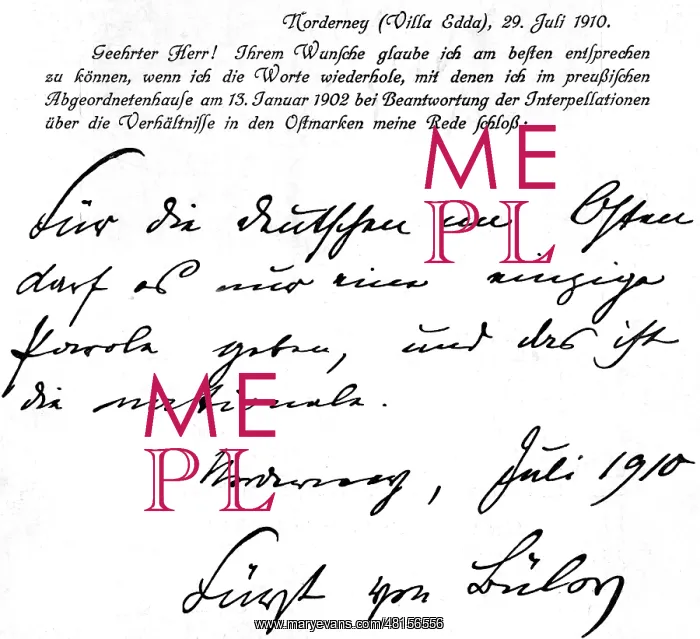 Norderney (Villa Edda), 29. Juli 1910.
Geehrter Herr! Ihrem Wunſche glaube ich am beſten entſprechen
zu können, wenn ich die Worte wiederhole, mit denen ich im preußiſchen
Abgeordnetenhauſe am 13. Januar 1902 bei Beantwortung der Interpellationen
über die Verhältniſſe in den Oſtmarken meine Rede ſchloß:
ME
Für die deutschen im Osten
PL
darf es nur eine einzige
Parole geben, und das ist
die nationale.
ME
PL
Norderney, Juli 1910
Fürst von Bülow
www.maryevans.com/48156556